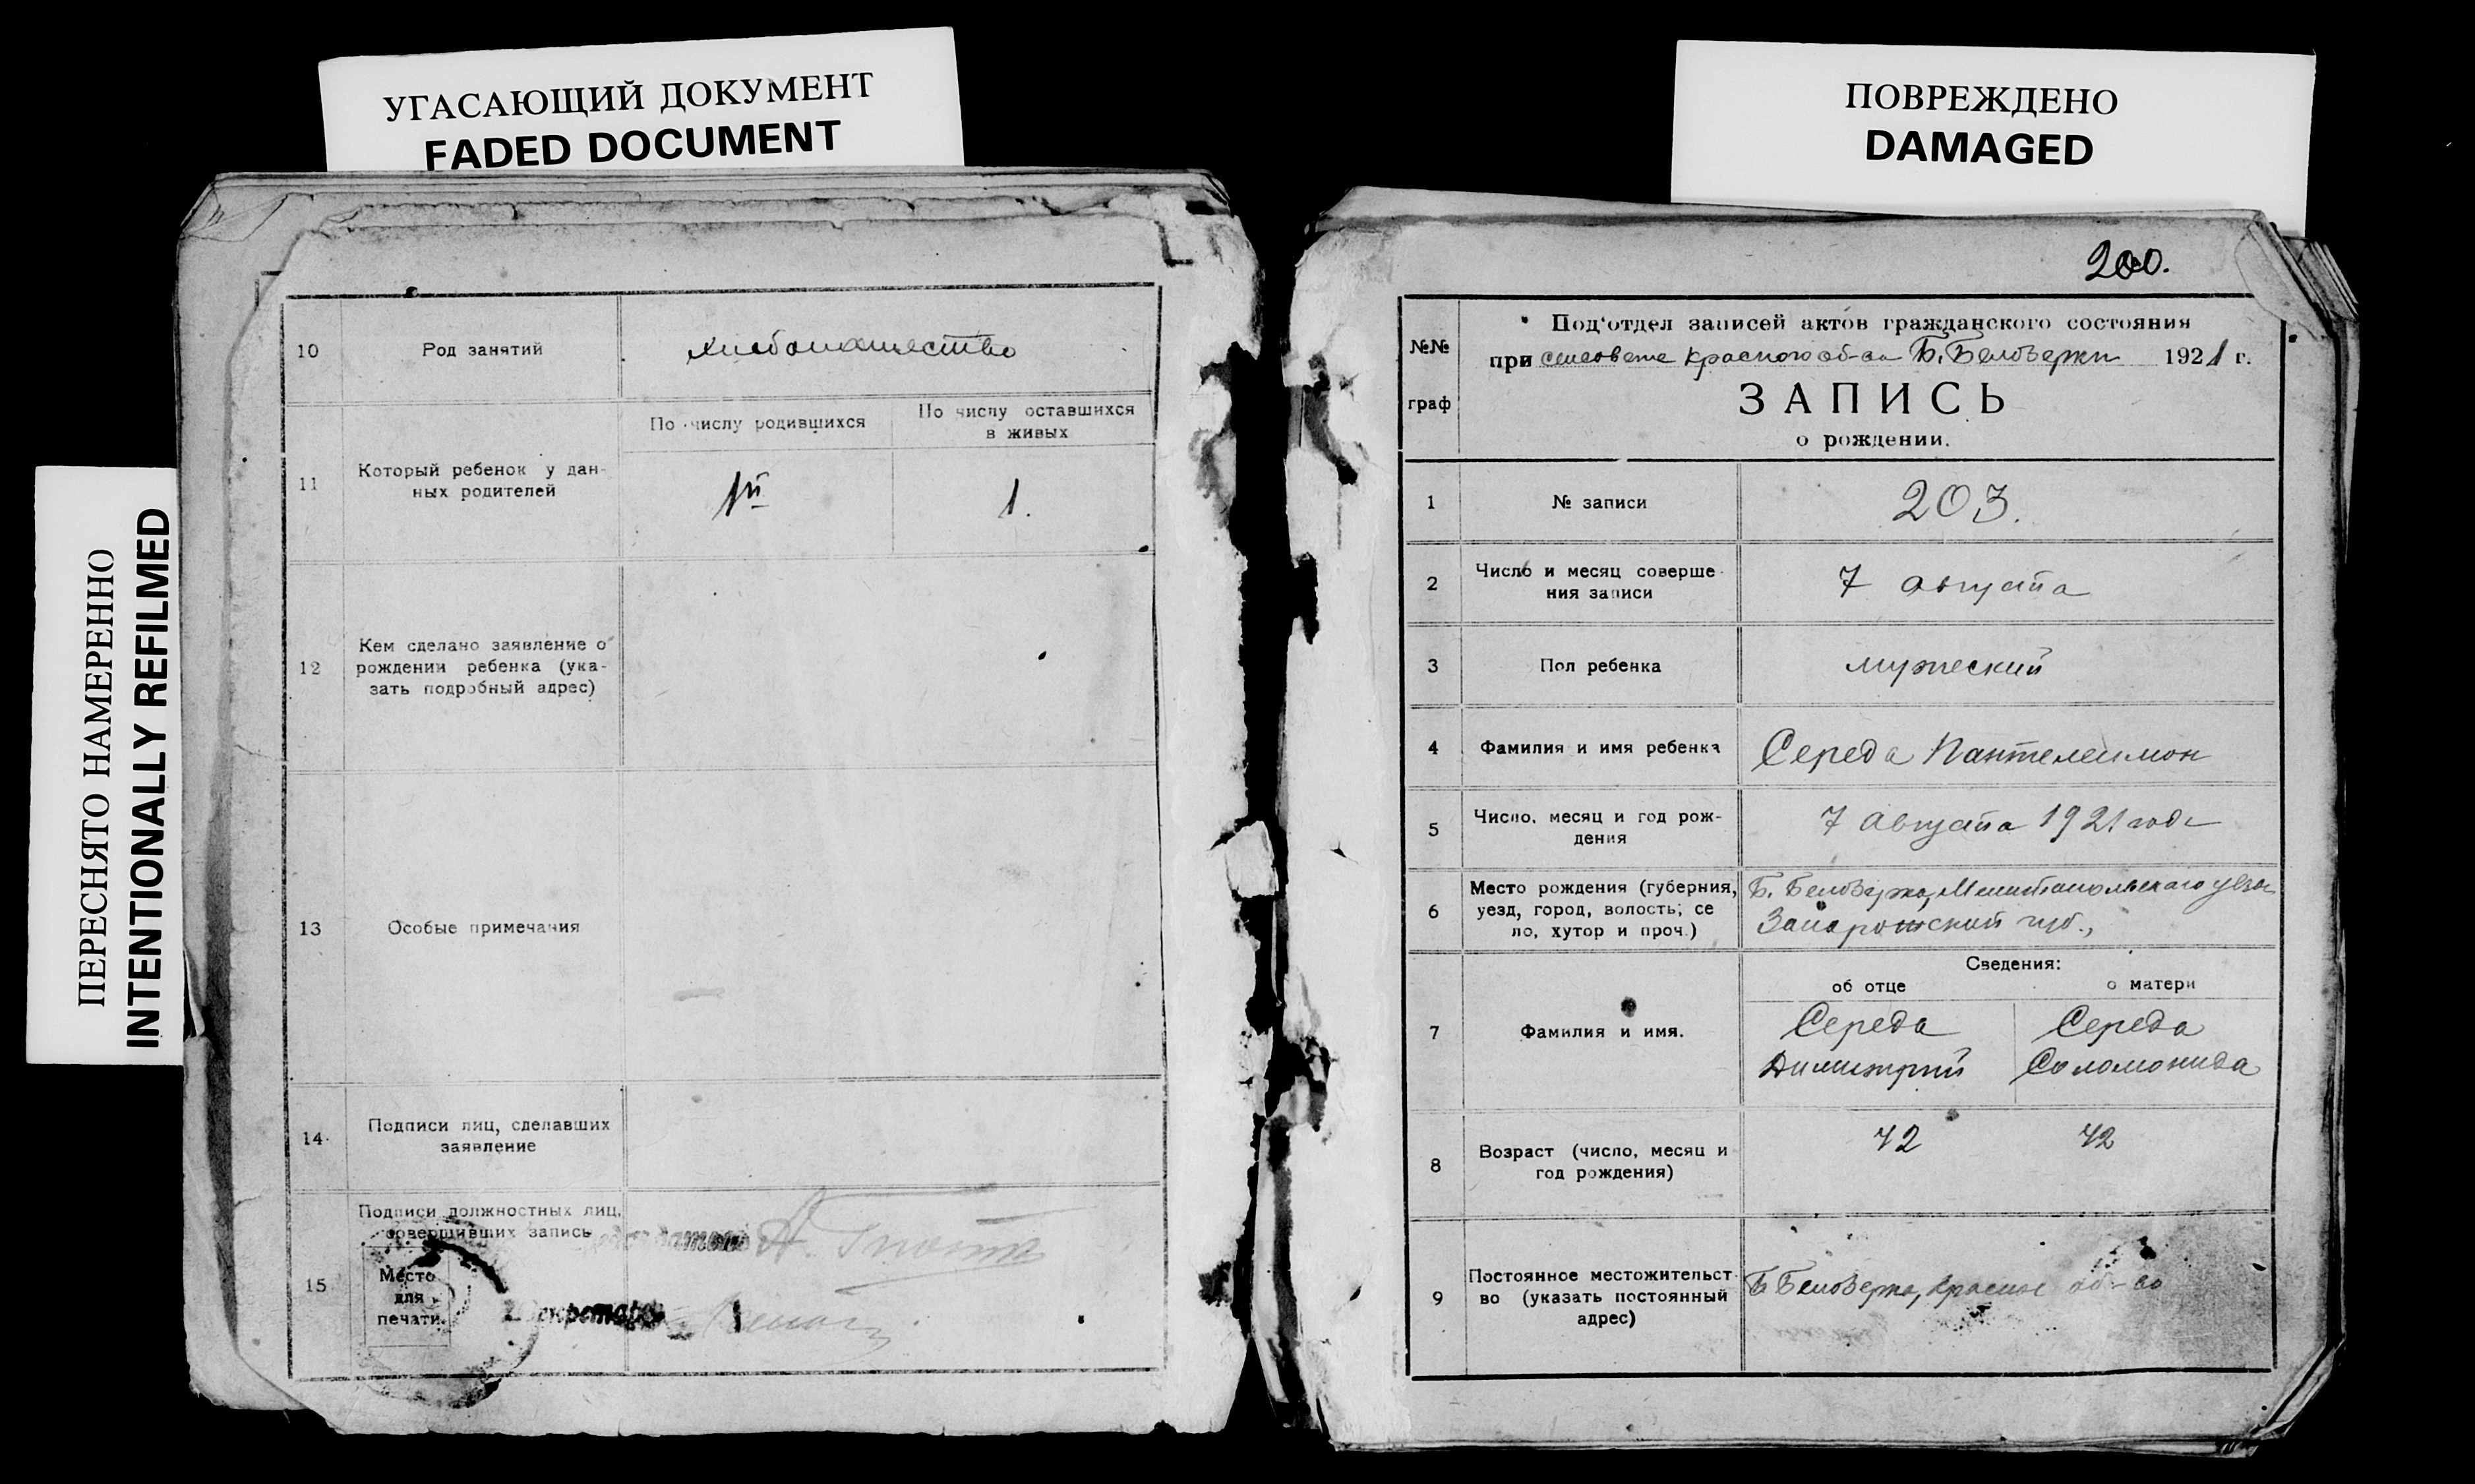 УГАСАЮЩИЙ ДОКУМЕНТ
FADED DOCUMENT
ПЕРЕСНЯТО НАМЕРЕННО
INTENTIONALLY REFILMED
10
Род занятий
хлебопашество
11
Который ребенок у дан-
ных родителей
По числу родившихся
По числу оставшихся
в живых
1й
1.
12
Кем сделано заявление о
рождении ребенка (ука-
зать подробный адрес)
13
Особые примечания
14
Подписи лиц, сделавших
заявление
15
Подписи должностных лиц,
совершивших запись
Место
для
печати.
Секретарь
ПОВРЕЖДЕНО
DAMAGED
200.
№№
граф
Под'отдел записей актов гражданского состояния
при сельсовете Красного об-ва Б. Белозерки 1921 г.
ЗАПИСЬ
о рождении.
1
№ записи
203.
2
Число и месяц соверше-
ния записи
7 августа
3
Пол ребенка
мужеский
4
Фамилия и имя ребенка
Середа Пантелеимон
5
Число, месяц и год рож-
дения
7 августа 1921 года
6
Место рождения (губерния,
уезд, город, волость, се
ло, хутор и проч.)
Б. Белозерка, Мелитопольского уезда
Запорожской губ.,
Сведения:
об отце
о матери
7
Фамилия и имя.
Середа
Димитрий
Середа
Соломонида
8
Возраст (число, месяц и
год рождения)
42
42
9
Постоянное местожительст
во (указать постоянный
адрес)
Б Белозерка, Красное об-во